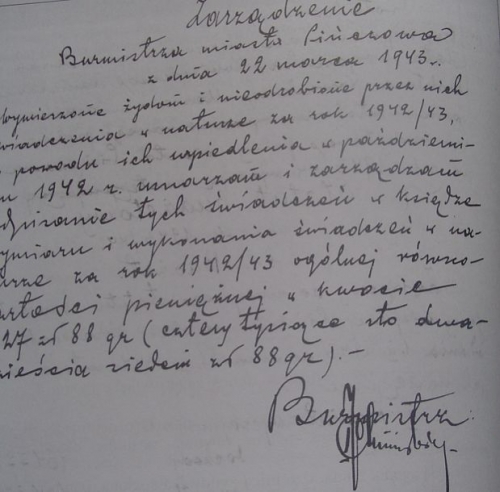 Zarządzenie
Burmistrza miasta Pińczowa
z dnia 22 marca 1943.
wymierzone żydom i nieodrobione przez nich
świadczenia w naturze za rok 1942/43,
powodu ich wysiedlenia w październi-
ku 1942 r. umarzam i zarządzam
odpisanie tych świadczeń w księdze
wymiaru i wykonania świadczeń w na-
turze za rok 1942/43 ogólnej równo-
wartości pieniężnej w kwocie
27 zł 88 gr (cztery tysiące sto dwa-
dzieścia siedem zł 88 gr).-
Burmistrz